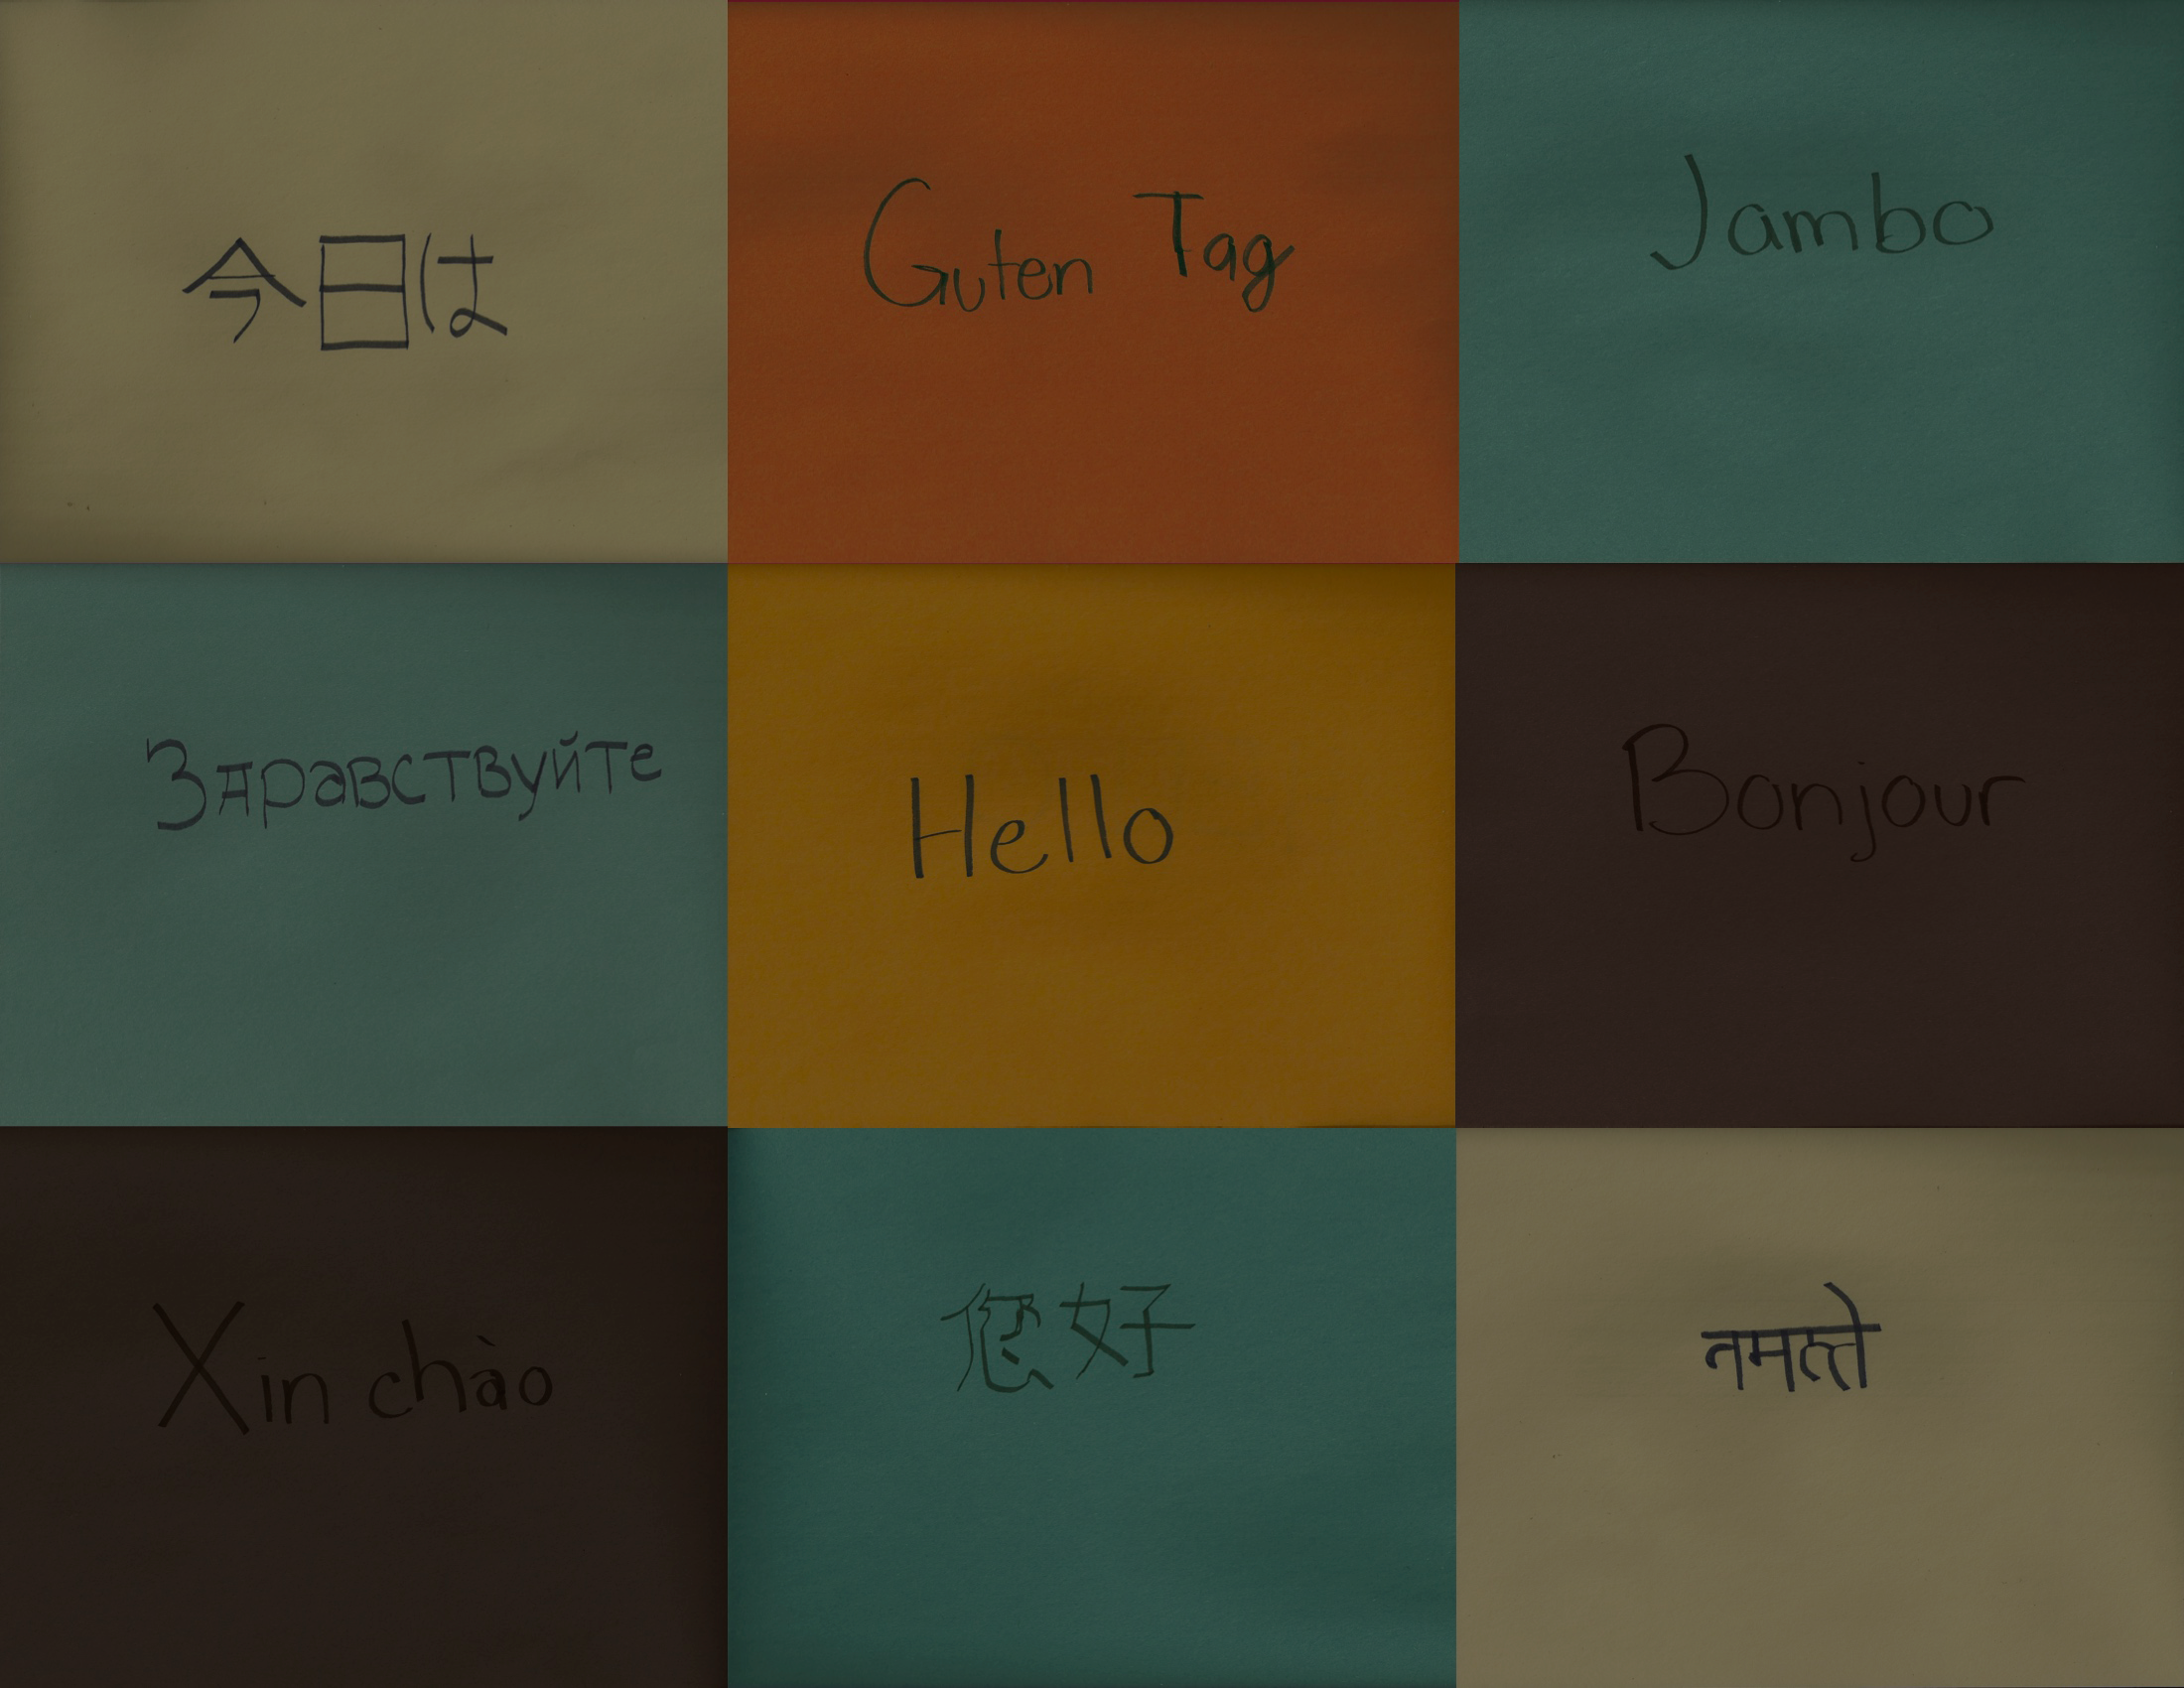 今日は
Guten Tag
Jambo
Здравствуйте
Hello
Bonjour
Xin chào
您好
नमत्ते